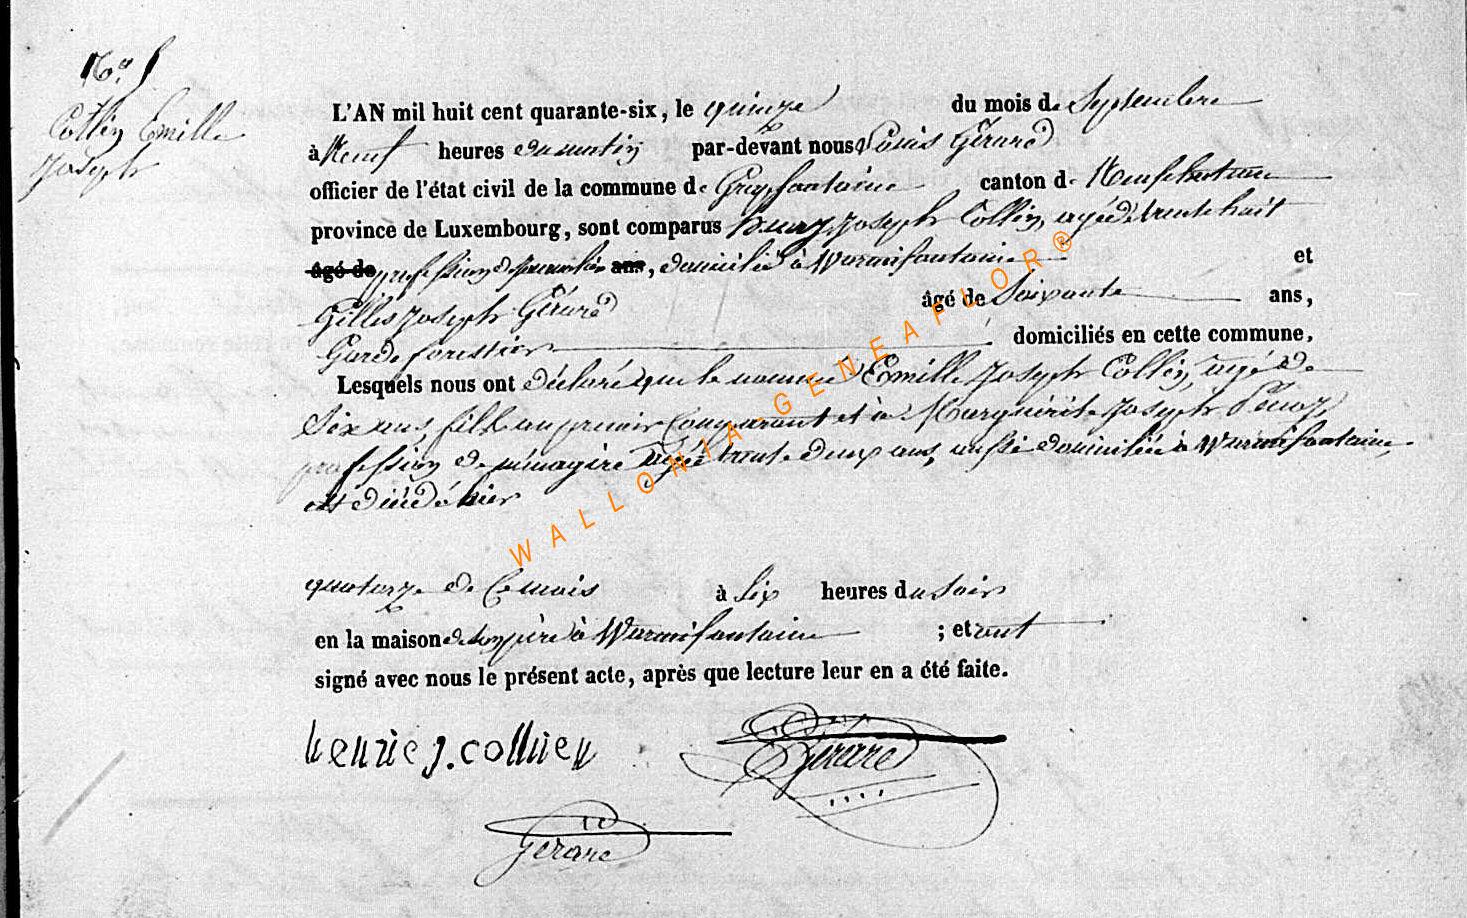 N° 5
Collin Emille
Joseph
L'AN mil huit cent quarante-six, le quinze du mois de Septembre
à Neuf heures du matin par-devant nous Louis Gérard
officier de l'état civil de la commune de Grapfontaine canton de Neufchateau
province de Luxembourg, sont comparus henry Joseph Collin, agé de trente huit
âgé de profession de journalier ans, domicilié à Warmifontaine et
Gilles Joseph Gérard âgé de Soixante ans,
Garde forestier domiciliés en cette commune,
Lesquels nous ont déclaré que le nommé Emille Joseph Collin, agé de
Six ans, fils au premier Comparant et à Marguerite Joseph
profession de ménagère agée trente deux ans, aussi domiciliée à Warmifontaine,
est décédé hier
quatorze de Ce mois à Six heures du Soir
en la maison de son père à Warmifontaine ; et ont
signé avec nous le présent acte, après que lecture leur en a été faite.
henrie j. collien
Gérard
Gerard
WALLONIA-GENEAFLOR®